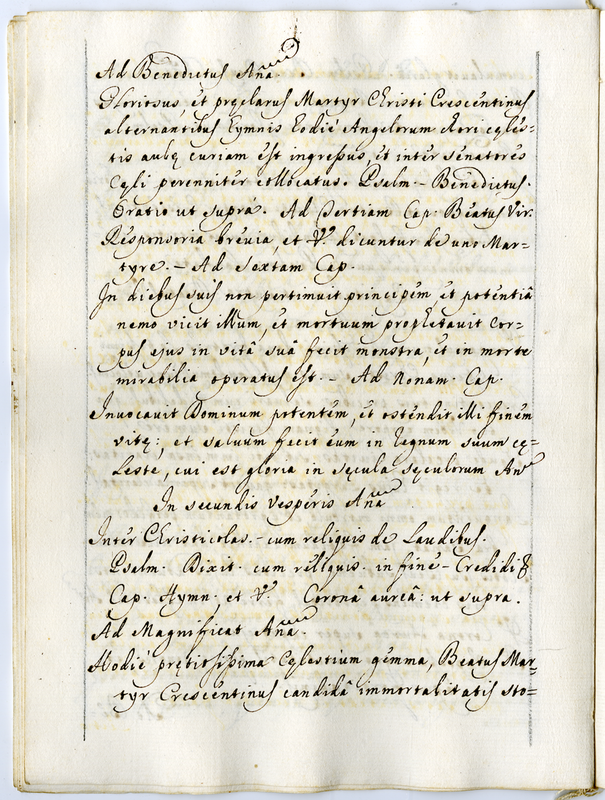 Ad Benedictus Aña.
Gloriosus, et pręclarus Martyr Christi Crescentinus
alternantibus hymnis hodie Angelorum chori cęles=
tis aulę curiam est ingressus, et inter senatores
Cęli perenniter collocatus. Psalm. - Benedictus.
Oratio ut suprà. Ad Tertiam Cap. Beatus Vir.
Responsoria brevia, et V. dicuntur de uno Mar=
tyre. - Ad Sextam Cap.
In diebus suis non pertimuit principem et potentiâ
nemo vicit illum, et mortuum prophetavit cor=
pus ejus in vitâ suâ fecit monstra, et in morte
mirabilia operatus est. - Ad Nonam. Cap.
Invocavit Dominum potentem, et ostendit illi finem
vitę: et salvum fecit eum in regnum suum cę=
leste, cui est gloria in sęcula sęculorum Am
In secundis vesperis Aña
Inter Christicolas. - cum reliquis de Laudibus.
Psalm. Dixit. cum reliquis. in fine - Credidi &
Cap. Hymn. et V. Coronâ aureâ: ut supra.
Ad Magnificat Aña.
Hodie pretiosissima Cęlestium gemma, Beatus Mar=
tyr Crescentinus candidâ immortalitatis sto=